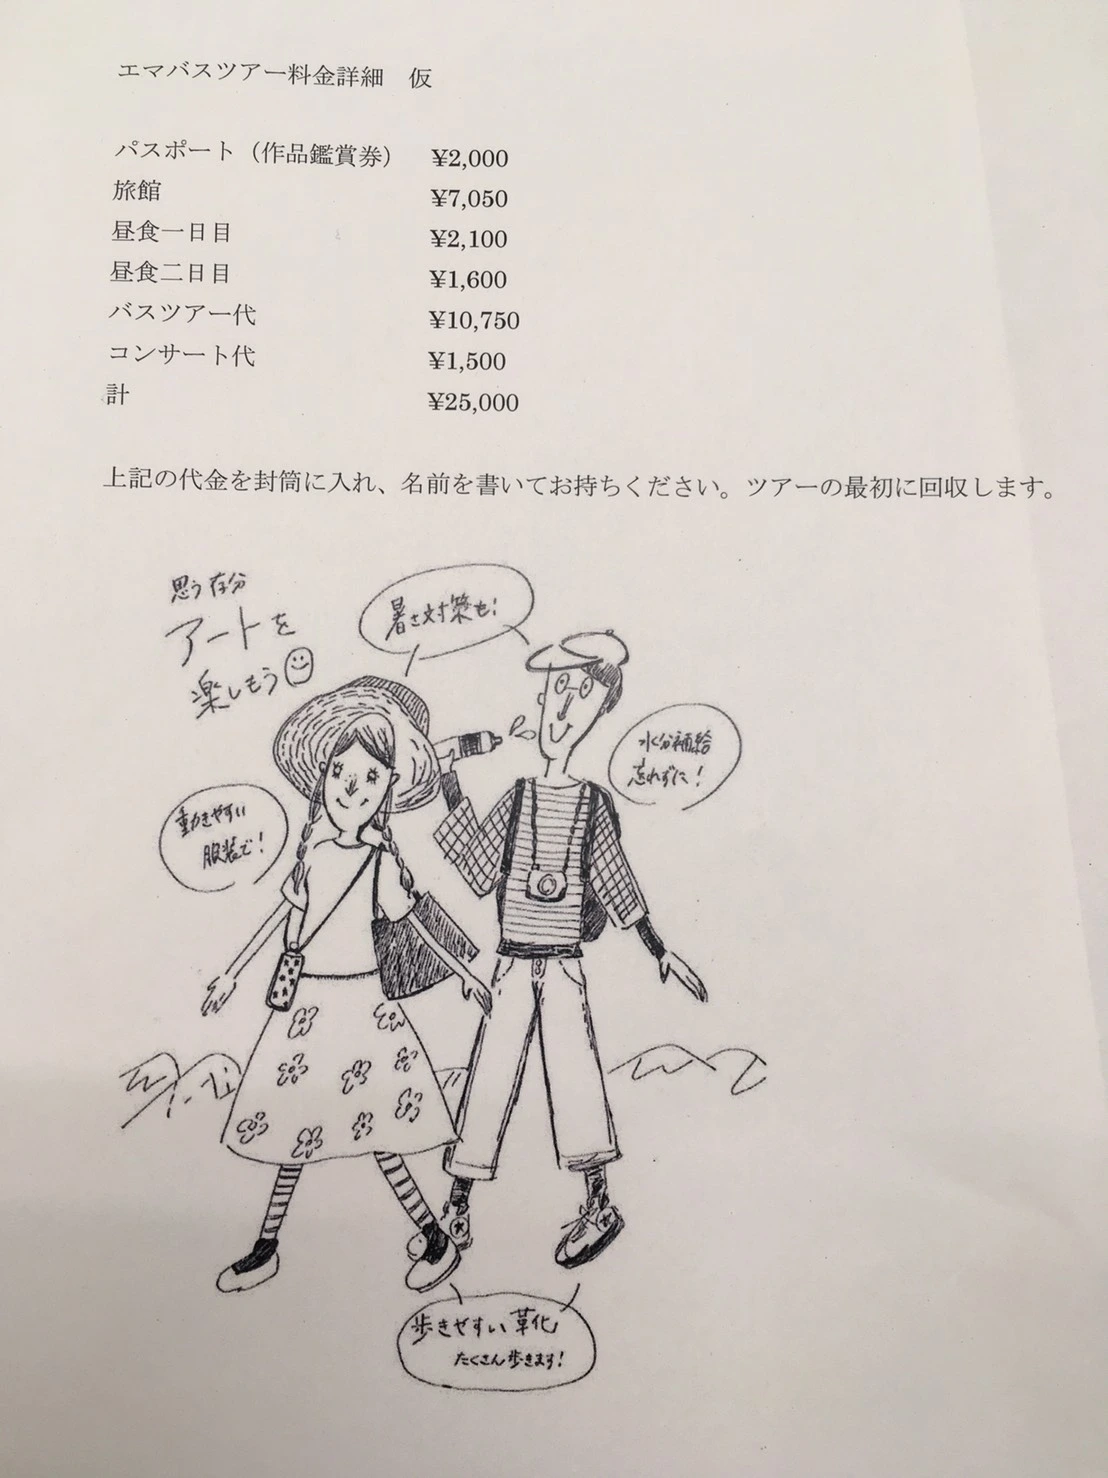 エマバスツアー料金詳細　仮
パスポート（作品鑑賞券）　¥2,000
旅館　¥7,050
昼食一日目　¥2,100
昼食二日目　¥1,600
バスツアー代　¥10,750
コンサート代　¥1,500
計　¥25,000
上記の代金を封筒に入れ、名前を書いてお持ちください。ツアーの最初に回収します。
思う存分
アートを
楽しもう
暑さ対策も!
水分補給
忘れずに!
動きやすい
服装で!
歩きやすい靴
たくさん歩きます!